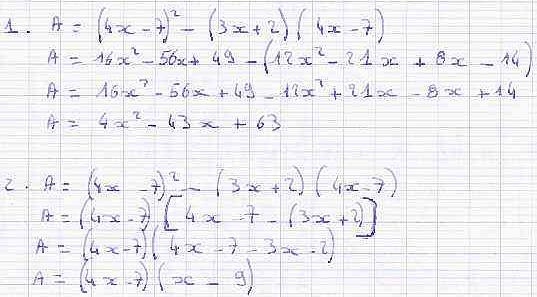 1. A = (4x - 7)² - (3x + 2) (4x - 7)
A = 16x² - 56x + 49 - (12x² - 21x + 8x - 14)
A = 16x² - 56x + 49 - 12x² + 21x - 8x + 14
A = 4x² - 43x + 63
2. A = (4x - 7)² - (3x + 2) (4x - 7)
A = (4x - 7) [4x - 7 - (3x + 2)]
A = (4x - 7) (4x - 7 - 3x - 2)
A = (4x - 7) (x - 9)